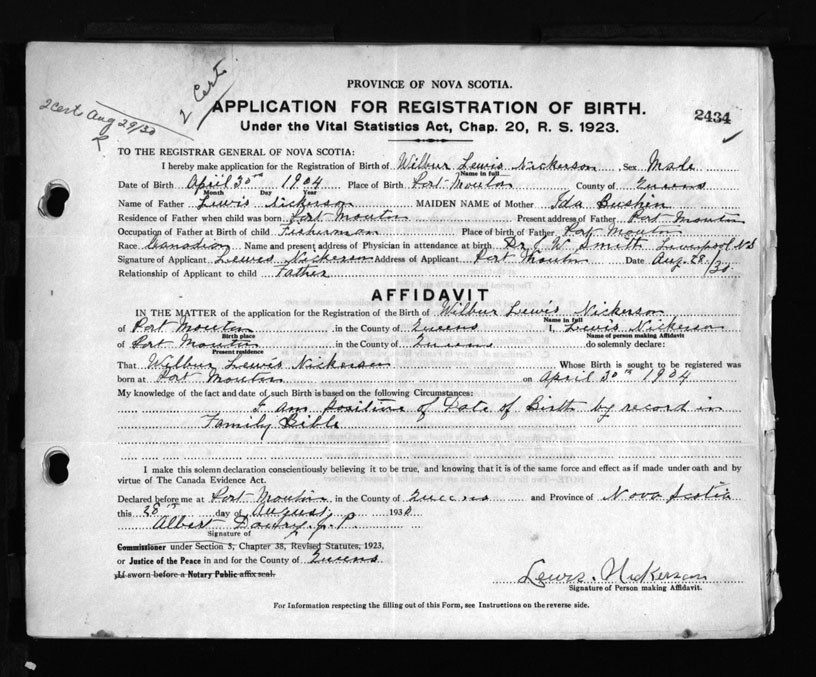 PROVINCE OF NOVA SCOTIA.
2 Cert.
2 Certs Aug 29/30
APPLICATION FOR REGISTRATION OF BIRTH.
2434
Under the Vital Statistics Act, Chap. 20, R. S. 1923.
TO THE REGISTRAR GENERAL OF NOVA SCOTIA:
I hereby make application for the Registration of Birth of Wilbur Lewis Nickerson Sex Male
Name in full
Date of Birth April 30th 1904 Place of Birth Port Mouton County of Queens
Month Day Year
Name of Father Lewis Nickerson MAIDEN NAME of Mother Ida Bushen
Residence of Father when child was born Port Mouton Present address of Father Port Mouton
Occupation of Father at Birth of child Fisherman Place of birth of Father Port Mouton
Race Canadian Name and present address of Physician in attendance at birth Dr J W Smith Liverpool NS
Signature of Applicant Lewis Nickerson Address of Applicant Port Mouton Date Aug. 28/30
Relationship of Applicant to child Father
AFFIDAVIT
IN THE MATTER of the application for the Registration of the Birth of Wilbur Lewis Nickerson
Name in full
of Port Mouton in the County of Queens I, Lewis Nickerson
Birth place Name of person making Affidavit
of Port Mouton in the County of Queens do solemnly declare:
Present residence
That Wilbur Lewis Nickerson Whose Birth is sought to be registered was
born at Port Mouton on April 30th 1904
My knowledge of the fact and date of such Birth is based on the following Circumstances:
I am positive of Date of Birth by record in
Family Bible
I make this solemn declaration conscientiously believing it to be true, and knowing that it is of the same force and effect as if made under oath and by
virtue of The Canada Evidence Act.
Declared before me at Port Mouton in the County of Queens and Province of Nova Scotia
this 28th day of August 1930
Albert J.P.
Signature of
Commissioner under Section 5, Chapter 38, Revised Statutes, 1923,
or Justice of the Peace in and for the County of Queens
If sworn before a Notary Public affix seal.
Lewis Nickerson
Signature of Person making Affidavit.
For Information respecting the filling out of this Form, see Instructions on the reverse side.